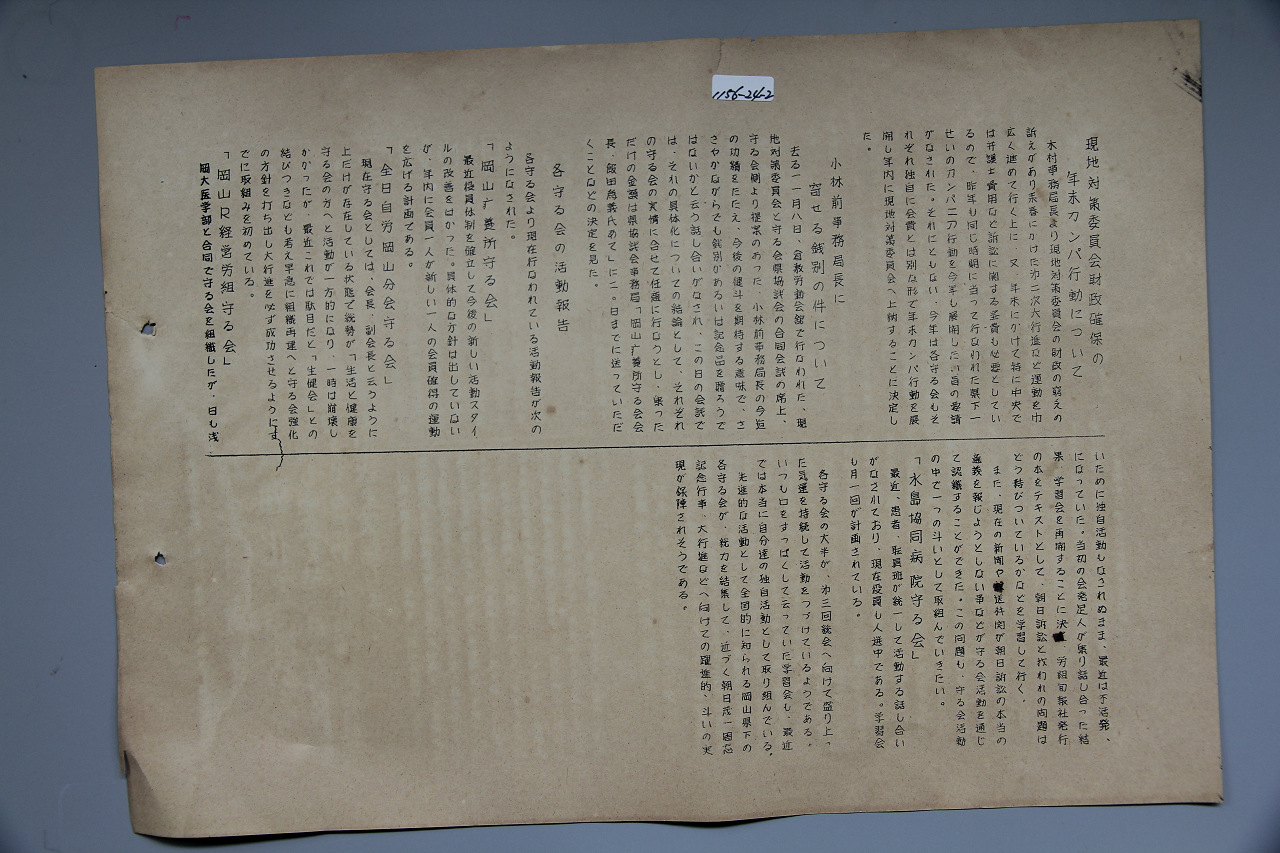 1156-24-2
現地対策委員会財政確保の
年末カンパ行動について
木村事務局長より現地対策委員会の財政の窮えの
訴えがあり来春にかけた才二次大行進など運動を巾
広く進めて行く上に、又、年末にかけて特に中央で
は弁護士費用など訴訟に関する経費も必要としてい
るので、昨年も同じ時期に当って行なわれた県下一
せいのカンパニア行動を今年も展開したい旨の要請
がなされた。それにともない、今年は各守る会もそ
れぞれ独自に会費とは別な形で年末カンパ行動を展
開し年内に現地対策委員会へ上納することに決定し
た。
小林前事務局長に
寄せる餞別の件について
去る一一月八日、倉敷労働会館で行なわれた、現
地対策委員会と守る会県協議会の合同会議の席上、
守る会側より提案のあった、小林前事務局長の今迄
の功績をたたえ、今後の健斗を期待する意味で、さ
さやかながらでも餞別かあるいは記念品を贈ろうで
はないかと云う話し合いがなされ、この日の会議で
は、それの具体化についての結論として、それぞれ
の守る会の実情に合せて任意に行なうとし、集った
だけの金額は県協議会事務局「岡山疗養所守る会会
長、飯田尚義氏あて」に二〇日までに送っていただ
くことなどの決定を見た。
各守る会の活動報告
各守る会より現在行なわれている活動報告が次の
ようになされた。
「岡山疗養所守る会」
最近役員体制を確立して今後の新しい活動スタイ
ルの改善をはかった。具体的な方針は出していない
が、年内に会員一人が新しい一人の会員確得の運動
を広げる計画である。
「全日自労岡山分会守る会」
現在守る会としては、会長、副会長と云うように
上だけが存在している状態で総勢が「生活と健康を
守る会の方へと活動が一方的になり、一時は崩壊し
かかったが、最近これでは駄目だと「生健会」との
結びつきなども考え早急に組織再建へと守る会強化
の方針を打ち出し大行進を必ず成功させるようにす
でに取組みを初めている。
「岡山R経営労組守る会」
岡大医学部と合同で守る会を組織したが、日も浅
いために独自活動もなされぬまま、最近は不活発、
になっていた。当初の会発足人が集り話し合った結
果、学習会を再開することに決、労組旬報社発行
の本をテキストとして、朝日訴訟と我われの問題は
どう結びついているかなどを学習して行く。
また、現在の新聞や送機関が朝日訴訟の本当の
意義を報じようとしない事などが守る会活動を通じ
て認識することができた。この問題も、守る会活動
の中で一つの斗いとして取組んでいきたい。
「水島協同病院守る会」
最近、患者、職員班が統一して活動する話し合い
がなされており、現在役員も人選中である。学習会
も月一回が計画されている。
各守る会の大半が、才三回総会へ向けて盛り上っ
た気運を持続して活動をつづけているようである。
いつも口をすっぱくして云っていた学習会も、最近
では本当に自分達の独自活動として取り組んでいる。
先進的な活動として全国的に知られる岡山県下の
各守る会が、総力を結集して、近づく朝日茂一周忌
記念行事、大行進などへ向けての躍進的、斗いの実
現が保障されそうである。